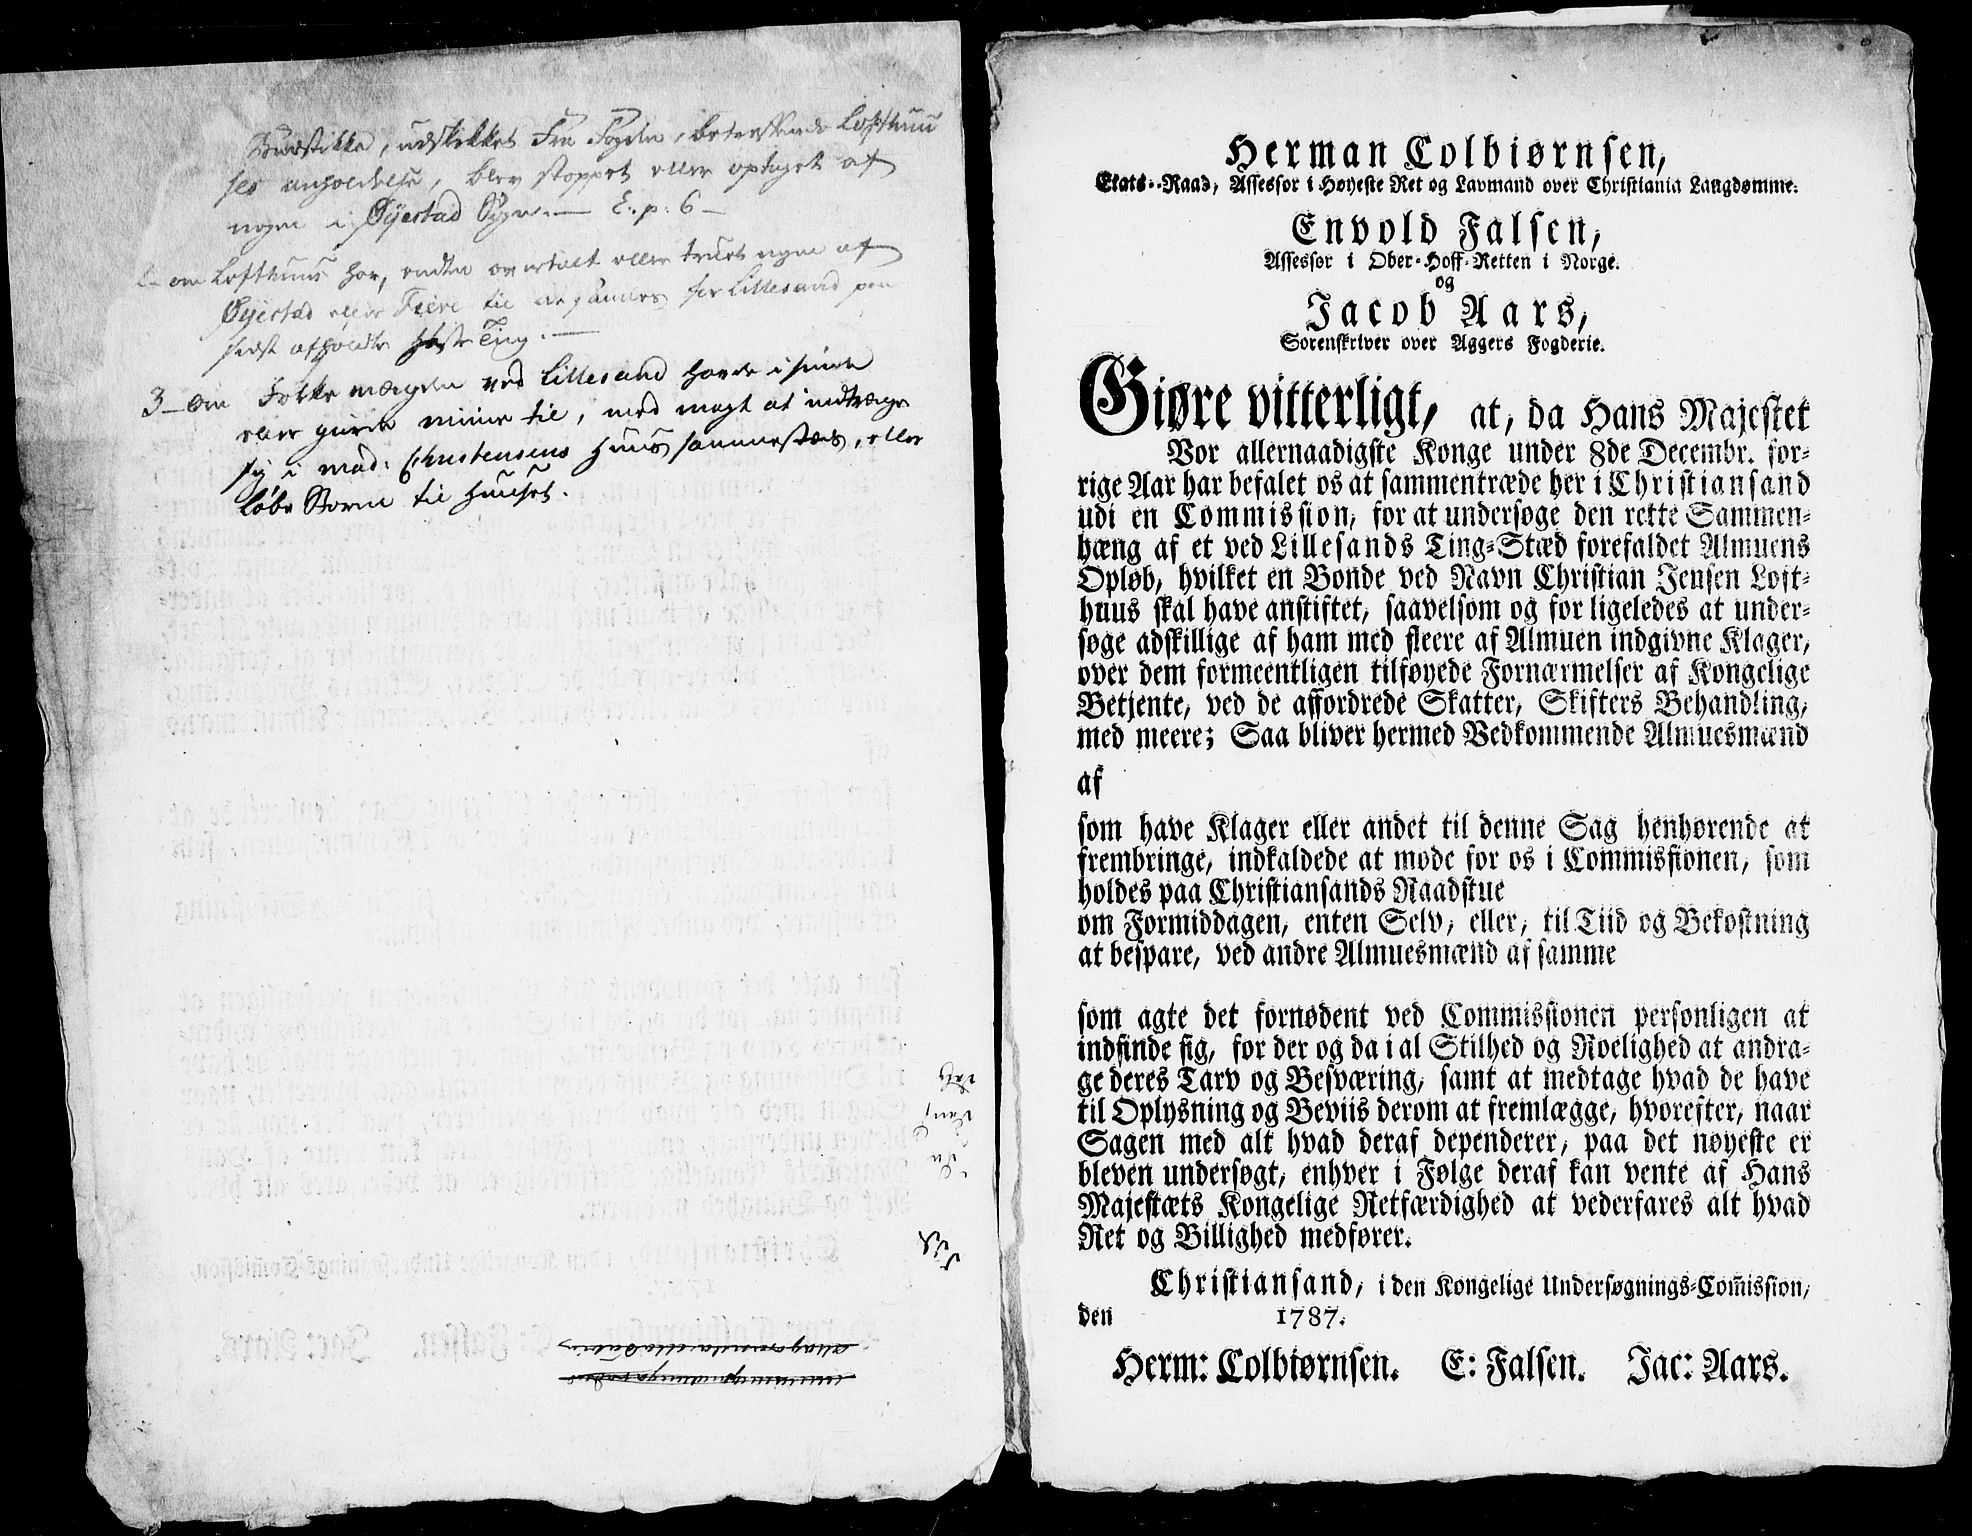 Budstikke, udskikket Fra Fogden, betreffende Lofthuu
ses anholdelse, blev stoppet eller optaget af
nogen i Øyestad Sogn. — E. p: 6 —
2 - om Lofthuus har, enten overtalt eller truet nogen af
Øyestad eller Feire til at samles for Lillesand paa
sidst afholdte Høste Ting. —
3 - Om Folke mængden ved Lillesand havde i sinde
eller giorde mine til, med magt at indtrænge
sig i mad: Christensens Huus sammestæds, eller
løbe Storm til Huuset.
Herman Colbiørnsen,
Etats-Raad, Assessor i Høyeste Ret og Lavmand over Christiania Laugdømme.
Envold Falsen,
Assessor i Ober-Hoff-Retten i Norge.
og
Jacob Aars,
Sorenskriver over Aggers Fogderie.
Giøre vitterligt, at, da Hans Majestet
Vor allernaadigste Konge under 8de Decembr. for-
rige Aar har befalet os at sammentræde her i Christiansand
udi en Commission, for at undersøge den rette Sammen-
hæng af et ved Lillesands Ting-Stæd forefaldet Almuens
Opløb, hvilket en Bonde ved Navn Christian Jensen Loft-
huus skal have anstiftet, saavelsom og for ligeledes at under-
søge adskillige af ham med fleere af Almuen indgivne Klager,
over dem formeentligen tilføyede Fornærmelser af Kongelige
Betjente, ved de affordrede Skatter, Skifters Behandling,
med meere; Saa bliver hermed Vedkommende Almuesmænd
af
som have Klager eller andet til denne Sag henhørende at
frembringe, indkaldede at møde for os i Commissionen, som
holdes paa Christiansands Raadstue
om Formiddagen, enten Selv, eller, til Tiid og Bekostning
at bespare, ved andre Almuesmænd af samme
som agte det fornødent ved Commissionen personligen at
indfinde sig, for der og da i al Stilhed og Roelighed at andra-
ge deres Tarv og Besværing, samt at medtage hvad de have
til Oplysning og Beviis derom at fremlægge, hvorefter, naar
Sagen med alt hvad deraf dependerer, paa det nøyeste er
bleven undersøgt, enhver i Følge deraf kan vente af Hans
Majestæts Kongelige Retfærdighed at vederfares alt hvad
Ret og Billighed medfører.
Christiansand, i den Kongelige Undersøgnings-Com̄ission,
den 1787.
Herm: Colbiørnsen. E: Falsen. Jac: Aars.